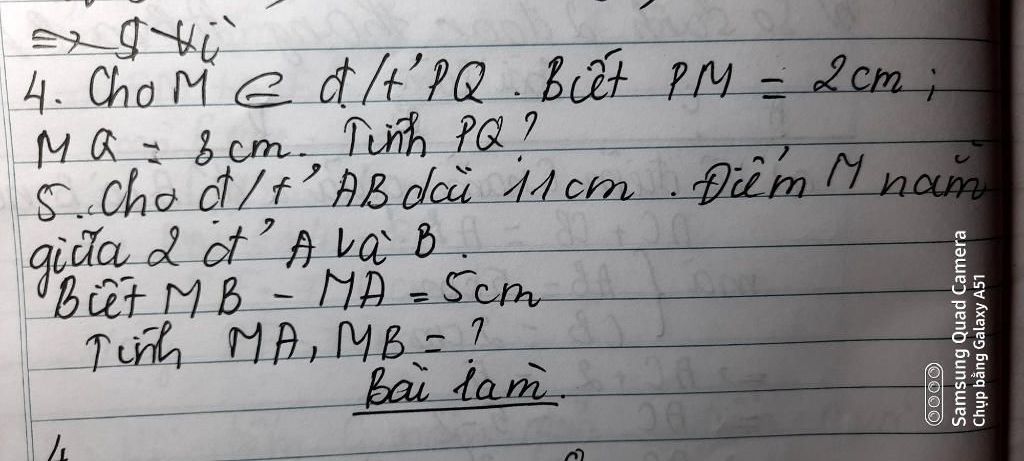 => g Vì
4. Cho M ∈ đ/t' PQ. Biết PM = 2cm;
MQ = 3cm. Tính PQ?
5. Cho đ/t' AB dài 11cm. Điểm M nằm
giữa 2 đ' A và B.
Biết MB - MA = 5cm
Tính MA, MB = ?
Bài làm.
4
Samsung Quad Camera
Chụp bằng Galaxy A51